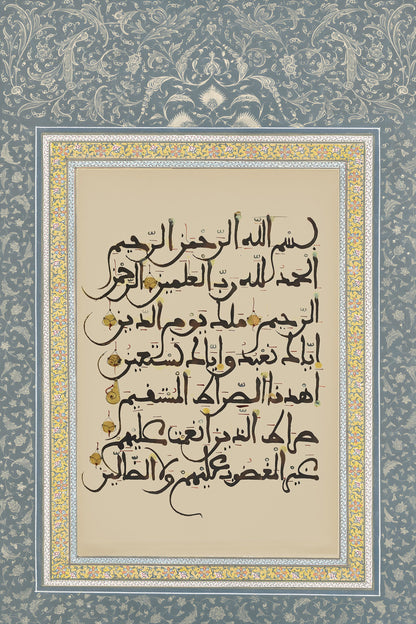 بسم الله الرحمن الرحيم
الحمد لله ربّ العلمين الرحمن
الرحيم ملك يوم الدين
إياك نعبد وإياك نستعين
اهدنا الصراط المستقيم
صراط الذين أنعمت عليهم
غير المغضوب عليهم ولا الضالين